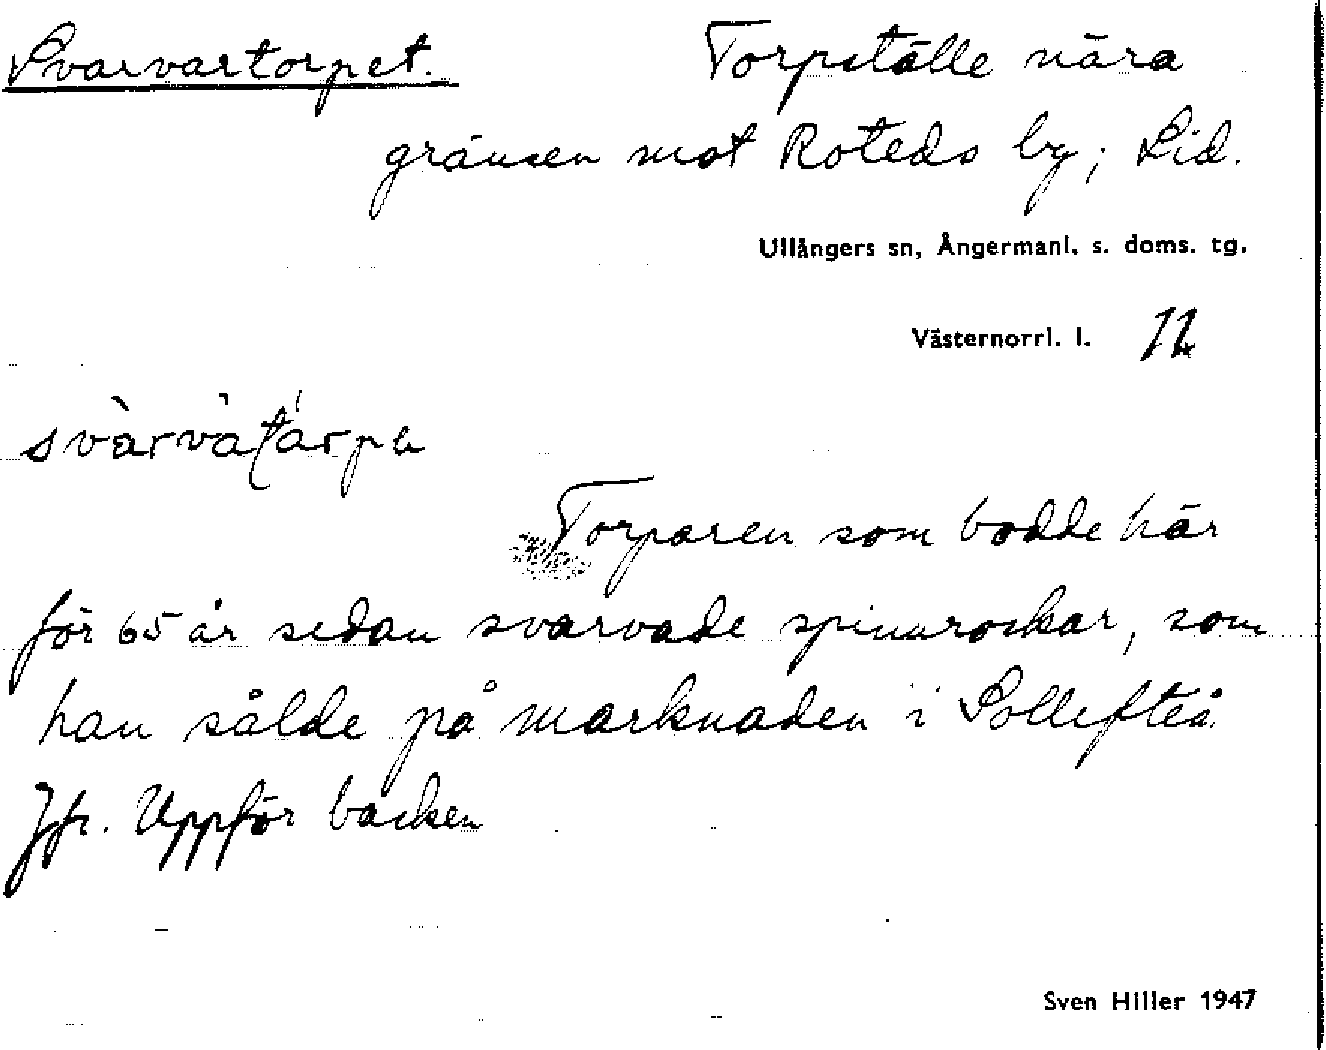 Svarvartorpet. Torpställe nära
gränsen mot Roteds by; Lid.
Ullångers sn, Ångermanl. s. doms. tg.
Västernorrl. l. 11
svàrvàtárpa
Torparen som bodde här
för 65 år sedan svarvade spinnrockar, som
han sålde på marknaden i Sollefteå.
Jfr. Uppför backen
Sven Hiller 1947